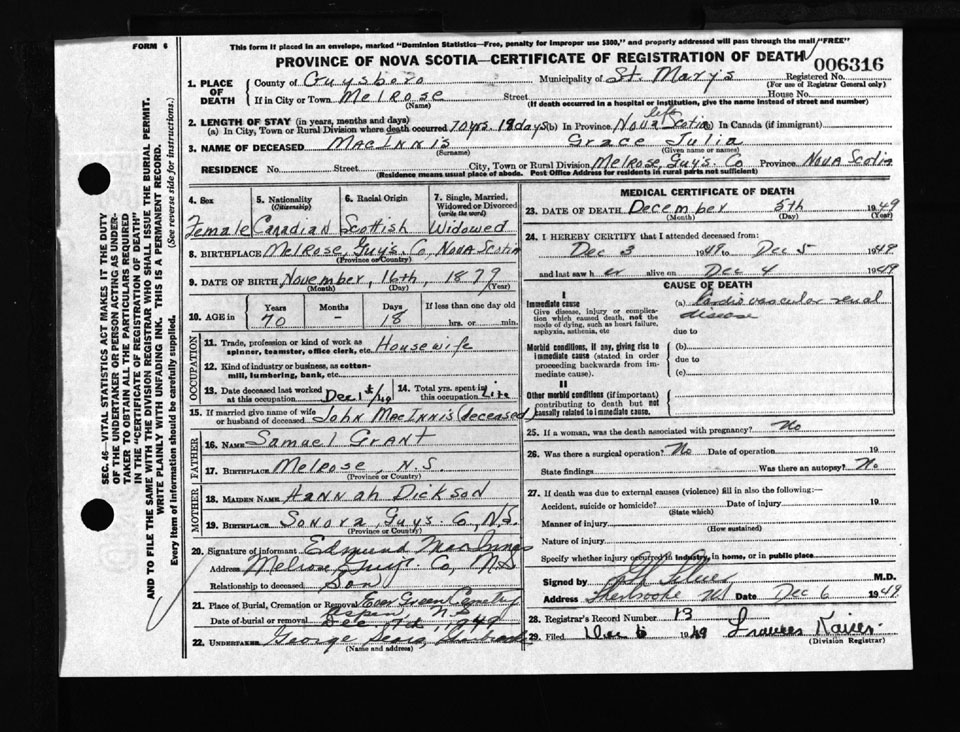 FORM 6
This form if placed in an envelope, marked "Dominion Statistics—Free, penalty for improper use $300," and properly addressed will pass through the mail "FREE"
PROVINCE OF NOVA SCOTIA—CERTIFICATE OF REGISTRATION OF DEATH
006316
1. PLACE OF DEATH
County of Guysboro Municipality of St. Mary's Registered No.
(For use of Registrar General only)
If in City or Town Melrose Street House No.
(Name) (If death occurred in a hospital or institution, give the name instead of street and number)
2. LENGTH OF STAY (in years, months and days)
(a) In City, Town or Rural Division where death occurred 70 yrs. 18 days (b) In Province Nova Scotia life (c) In Canada (if immigrant)
3. NAME OF DECEASED MacInnis Grace Julia
(Surname) (Given name or names)
RESIDENCE No. Street City, Town or Rural Division Melrose, Guy's. Co Province Nova Scotia
(Residence means usual place of abode. Post Office Address for residents in rural parts not sufficient)
4. Sex Female
5. Nationality (Citizenship) Canadian
6. Racial Origin Scottish
7. Single, Married, Widowed or Divorced (write the word) Widowed
8. BIRTHPLACE Melrose, Guy's. Co, Nova Scotia
(Province or Country)
9. DATE OF BIRTH November, 16th, 1879
(Month) (Day) (Year)
10. AGE in Years 70 Months - Days 18 If less than one day old hrs. or min.
OCCUPATION
11. Trade, profession or kind of work as spinner, teamster, office clerk, etc. Housewife
12. Kind of industry or business, as cotton-mill, lumbering, bank, etc.
13. Date deceased last worked at this occupation Dec 1st/49
14. Total yrs. spent in this occupation Life
15. If married give name of wife or husband of deceased John MacInnis (deceased)
FATHER
16. NAME Samuel Grant
17. BIRTHPLACE Melrose, N.S.
(Province or Country)
MOTHER
18. MAIDEN NAME Hannah Dickson
19. BIRTHPLACE Sonora, Guys. Co, N.S.
(Province or Country)
20. Signature of informant Edmund MacInnes
Address Melrose Guys. Co, N.S
Relationship to deceased Son
21. Place of Burial, Cremation or Removal Ever Green Cemetery
Aspen N.S.
Date of burial or removal Dec 7th, 1949
22. UNDERTAKER George Sears,
(Name and address)
MEDICAL CERTIFICATE OF DEATH
23. DATE OF DEATH December 5th 1949
(Month) (Day) (Year)
24. I HEREBY CERTIFY that I attended deceased from:
Dec 3 1949 to Dec 5 1949
and last saw her alive on Dec 4 1949
CAUSE OF DEATH
I
Immediate cause (a) Cardiovascular renal disease
Give disease, injury or complication which caused death, not the mode of dying, such as heart failure, asphyxia, asthenia, etc
due to
Morbid conditions, if any, giving rise to immediate cause (stated in order proceeding backwards from immediate cause).
(b)
due to
(c)
II
Other morbid conditions (if important) contributing to death but not causally related to immediate cause.
25. If a woman, was the death associated with pregnancy? No
26. Was there a surgical operation? No Date of operation 19
State findings Was there an autopsy? No
27. If death was due to external causes (violence) fill in also the following:—
Accident, suicide or homicide? Date of injury 19
(State which)
Manner of injury
(How sustained)
Nature of injury
Specify whether injury occurred in industry, in home, or in public place
Signed by M.D.
Address Sherbrooke NS Date Dec 6 1949
28. Registrar's Record Number 13
29. Filed Dec 6 1949 Frances Kaiser
(Division Registrar)
SEC. 46—VITAL STATISTICS ACT MAKES IT THE DUTY
OF THE UNDERTAKER OR PERSON ACTING AS UNDER-
TAKER TO OBTAIN ALL THE PARTICULARS REQUIRED
IN THE "CERTIFICATE OF REGISTRATION OF DEATH"
AND TO FILE THE SAME WITH THE DIVISION REGISTRAR WHO SHALL ISSUE THE BURIAL PERMIT.
WRITE PLAINLY WITH UNFADING INK. THIS IS A PERMANENT RECORD.
Every item of information should be carefully supplied. (See reverse side for instructions.)